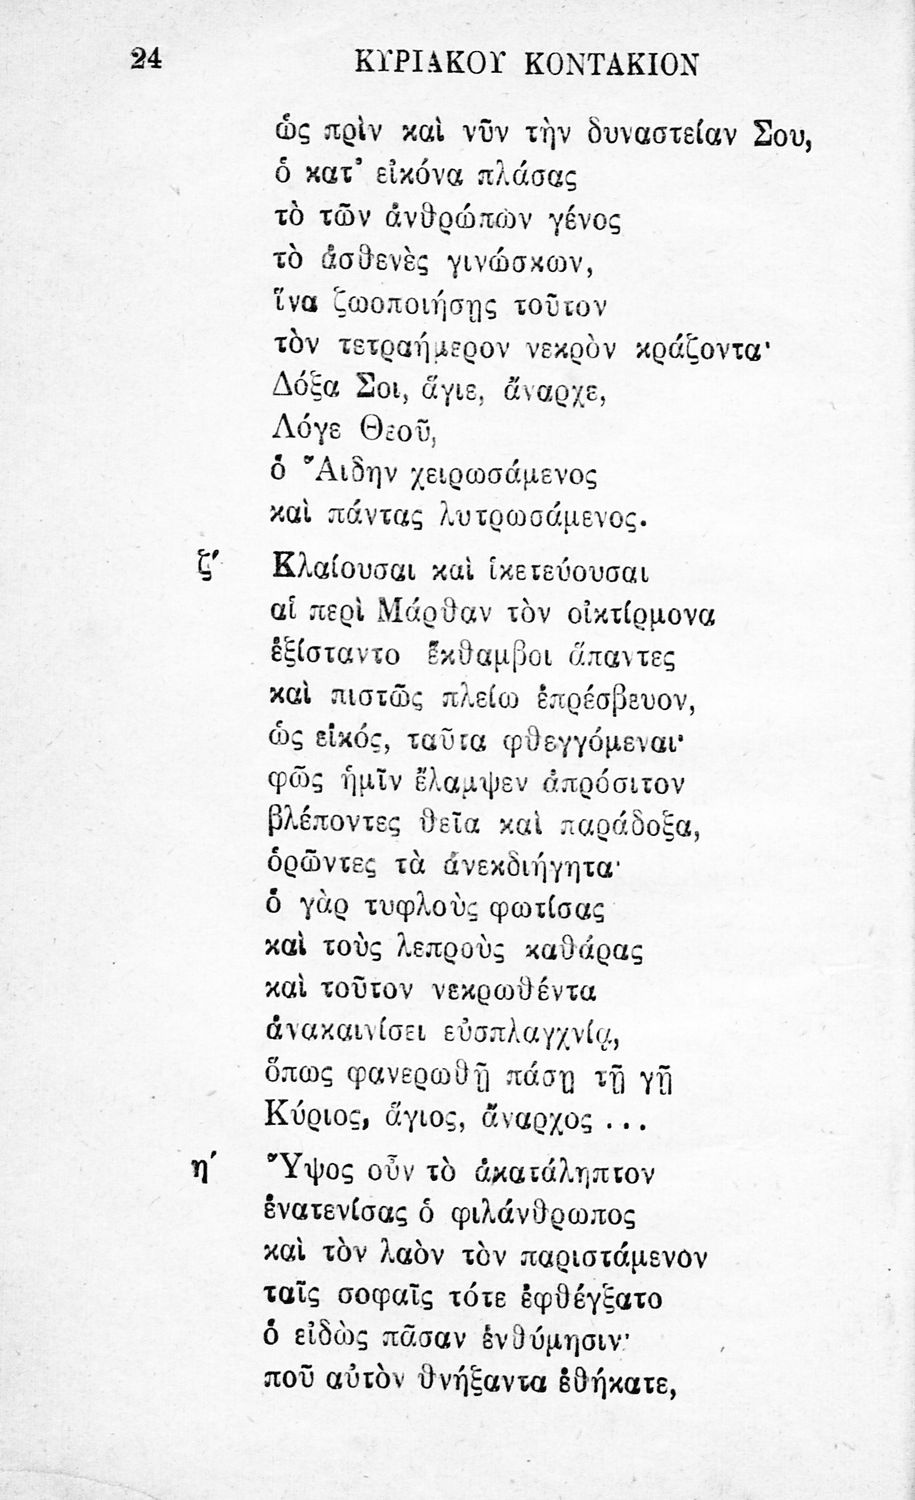 24 ΚΥΡΙΑΚΟΥ ΚΟΝΤΑΚΙΟΝ
ὡς πρὶν καὶ νῦν τὴν δυναστείαν Σου,
ὁ κατ’ εἰκόνα πλάσας
τὸ τῶν ἀνθρώπων γένος
τὸ ἀσθενὲς γινώσκων,
ἵνα ζωοποιήσῃς τοῦτον
τὸν τετραήμερον νεκρὸν κράζοντα·
Δόξα Σοι, ἅγιε, ἄναρχε,
Λόγε Θεοῦ,
ὁ Ἅιδην χειρωσάμενος
καὶ πάντας λυτρωσάμενος.
ζ′ Κλαίουσαι καὶ ἱκετεύουσαι
αἱ περὶ Μάρθαν τὸν οἰκτίρμονα
ἐξίσταντο ἔκθαμβοι ἅπαντες
καὶ πιστῶς πλείω ἐπρέσβευον,
ὡς εἰκός, ταῦτα φθεγγόμεναι·
φῶς ἡμῖν ἔλαμψεν ἀπρόσιτον
βλέποντες θεῖα καὶ παράδοξα,
ὁρῶντες τὰ ἀνεκδιήγητα·
ὁ γὰρ τυφλοὺς φωτίσας
καὶ τοὺς λεπροὺς καθάρας
καὶ τοῦτον νεκρωθέντα
ἀνακαινίσει εὐσπλαγχνίᾳ,
ὅπως φανερωθῇ πάσῃ τῇ γῇ
Κύριος, ἅγιος, ἄναρχος ...
η′ Ὕψος οὖν τὸ ἀκατάληπτον
ἐνατενίσας ὁ φιλάνθρωπος
καὶ τὸν λαὸν τὸν παριστάμενον
ταῖς σοφαῖς τότε ἐφθέγξατο
ὁ εἰδὼς πᾶσαν ἐνθύμησιν·
ποῦ αὐτὸν θνήξαντα ἐθήκατε,